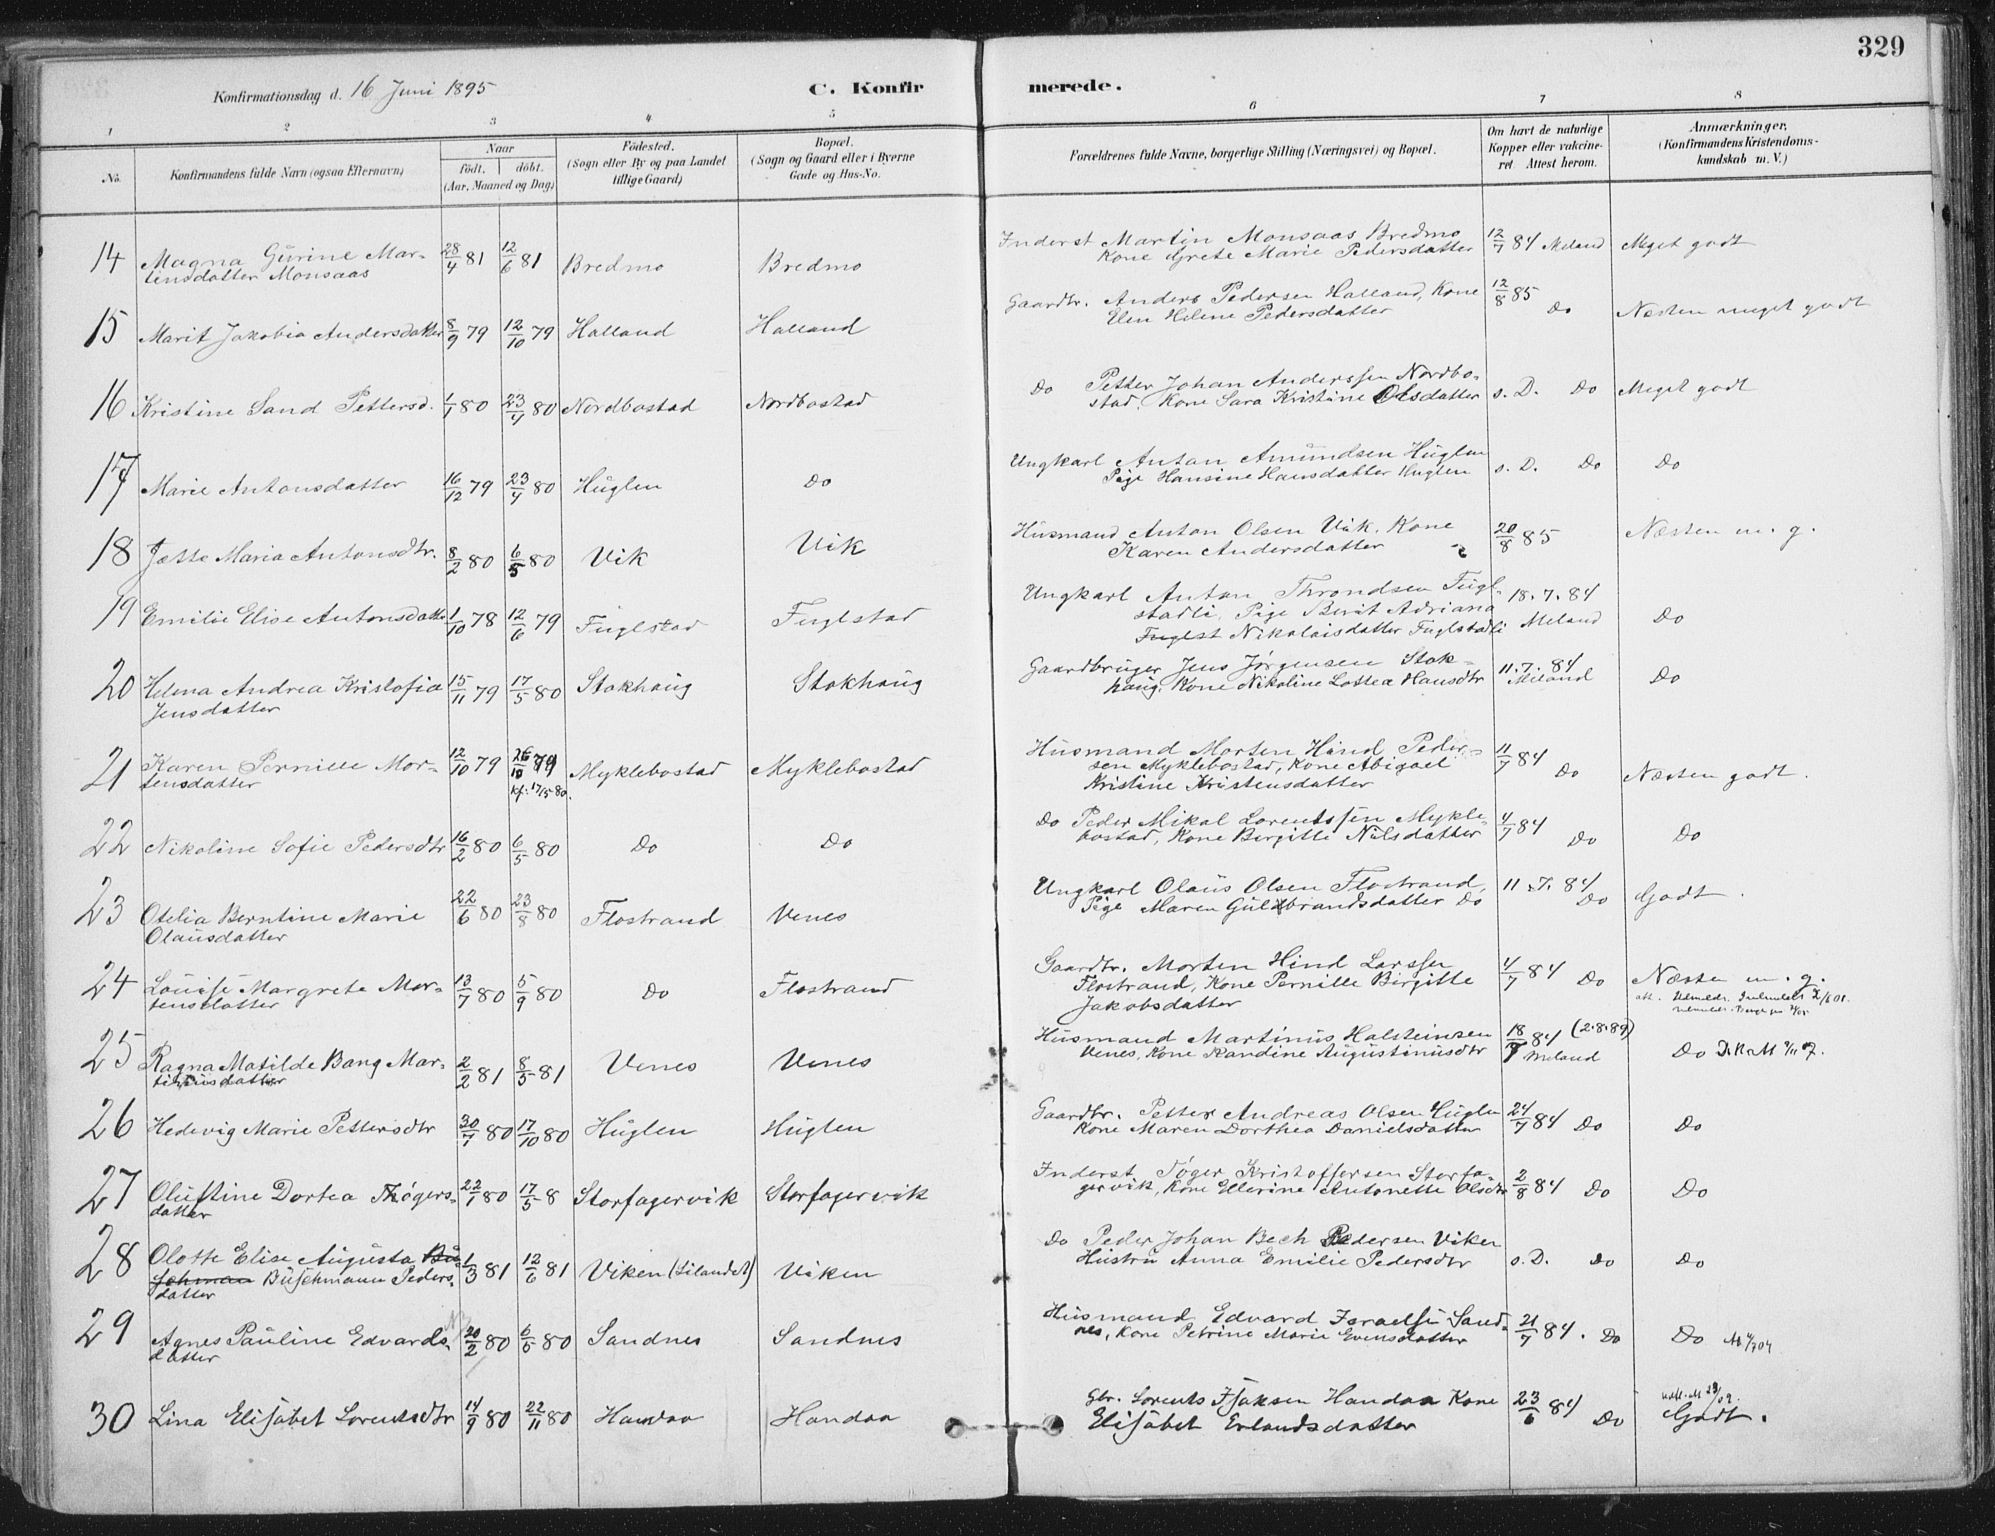 329
Konfirmationsdag d. 16 Juni 1895
C. Konfir
merede.
1 2 3 4 5 6 7 8
No.
Konfirmandens fulde Navn (ogsaa Efternavn)
Naar
födt. döbt.
(Aar, Maaned og Dag)
Födested.
(Sogn eller By og paa Landet
tillige Gaard)
Bopæl.
(Sogn og Gaard eller i Byerne
Gade og Hus-No.
Forældrenes fulde Navne, borgerlige Stilling (Næringsvei) og Bopæl.
Om havt de naturlige
Kopper eller vakcine-
ret. Attest herom.
Anmærkninger.
(Konfirmandens Kristendoms-
kundskab m. V.)
14 Magna Gurine Mar- 28/4 81 12/6 81 Bredmo Bredmo Inderst Martin Monsaas Bredmo 12/7 84 Meland Meget godt
tensdatter Monsaas Kone Grete Marie Pedersdatter
15 Marit Jakobia Andersdatter 8/9 79 12/10 79 Halland Halland Gaardbr. Anders Pedersen Halland, Kone 12/8 85 Do Næsten meget godt
Elen Helene Pedersdatter
16 Kristine Sand Pettersd. 1/1 80 23/4 80 Nordbostad Nordbostad Do Petter Johan Anderssen Nordbo- s. D. Do Meget godt
stad, Kone Sara Kristine Olsdatter
17 Marie Antonsdatter 16/12 79 23/4 80 Huglen Do Ungkarl Anton Amundsen Huglen s. D. Do Do
Pige Hansine Hansdatter Huglen
18 Jette Maria Antonsdtr. 8/2 80 6/5 80 Vik Vik Husmand Anton Olsen Vik. Kone 20/8 85 Næsten m. g.
Karen Andersdatter
19 Emilie Elise Antonsdatter 1/10 78 12/6 79 Fuglstad Fuglstad Ungkarl Anton Throndsen Fugl- 18.7.84
stadli, Pige Berit Adriana Meland Do
Fuglst Nikolaisdatter Fuglstadli
20 Helena Andrea Kristofia 15/11 79 17/5 80 Stokhaug Stokhaug Gaardbruger Jens Jørgensen Stok- 11.7.84
Jensdatter haug, Kone Nikoline Lottea Hansdtr Meland Do
21 Karen Pernille Mor- 12/10 79 26/10 79 Myklebostad Myklebostad Husmand Morten Hind Peder- 11/7 84 Do Næsten godt.
tensdatter kf. 17/5 80. sen Myklebostad, Kone Abigael
Kristine Kristensdatter
22 Nikoline Sofie Pedersdtr 16/2 80 6/5 80 Do Do Do Peder Mikal Lorentssen Mykle- 4/7 84 Do Do
bostad, Kone Bergitte Nilsdatter
23 Otelia Berntine Marie 22/6 80 23/8 80 Flostrand Venes Ungkarl Olaus Olsen Flostrand, 11.7.84 Do Godt.
Olausdatter Pige Maren Guldbrandsdatter Do
24 Louise Margrete Mor- 13/7 80 5/9 80 Do Flostrand Gaardbr. Morten Hind Larssen 4/7 84 Do Næste m. g.
tensdatter Flostrand, Kone Pernille Birgitte
Jakobsdatter
25 Ragna Matilde Bang Mar- 2/2 81 8/5 81 Venes Venes Husmand Martinus Halsteinsen 18/7 84 (2.8.89)
tinusdatter Venes, Kone Kandine Augustinusdtr Meland Do
26 Hedevig Marie Pettersdtr 30/7 80 17/10 80 Huglen Huglen Gaardbr. Petter Andreas Olsen Huglen 24/7 84 Do Do
Kone Maren Dorthea Danielsdatter
27 Olustine Dortea Thøgers- 22/1 80 17/5 8 Storfagervik Storfagervik Inderst Tøger Kristoffersen Storfa- 2/8 84 Do Do
datter gervik, Kone Ellerine Antonette Olsdtr
28 Olotte Elise Augusta Bü- 1/3 81 12/6 81 Viken (Lilandet) Viken Do Peder Johan Bech Pedersen Viken
schman Büschmann Peders- Hustru Anna Emilie Pedersdtr s. D. Do Do
datter
29 Agnes Pauline Edvards- 20/2 80 6/5 80 Sandnes Sandnes Husmand Edvard Israelss Sand- 21/7 84. Do Do
datter nes, Kone Petrine Marie Evensdatter
30 Lina Elisabet Lorentsdtr 14/9 80 22/11 80 Handaa Handaa Gbr. Lorents Isaksen Handaa Kone 23/6 84 Do Godt.
Elisabet Erlandsdatter